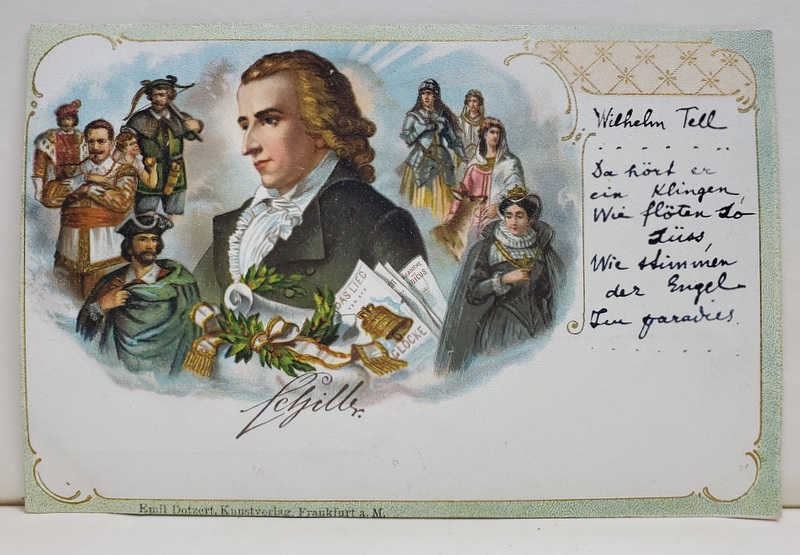 Wilhelm Tell
. . . . . . . .
Da hört er
ein Klingen
Wie flöten so
süss,
Wie stimmen
der Engel
Im paradies.
. . . . . .
DAS LIED
GLOCKE
Schiller.
Emil Dotzert, Kunstverlag, Frankfurt a. M.